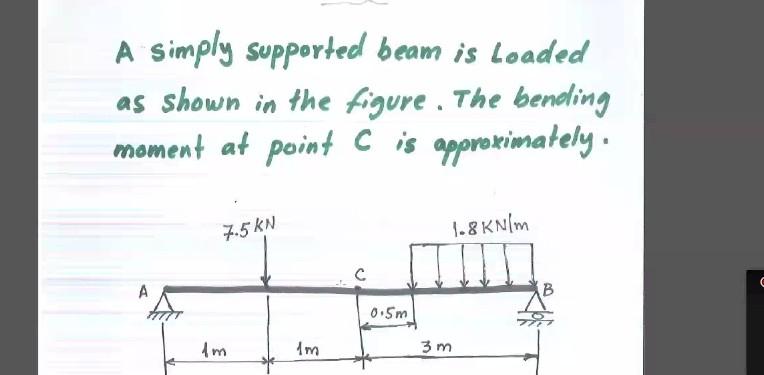 A simply supported beam is Loaded
as shown in the figure. The bending
moment at point C is approximately.
7.5 KN
1.8 KN/m
C
A
B
0.5m
1m
1m
3 m